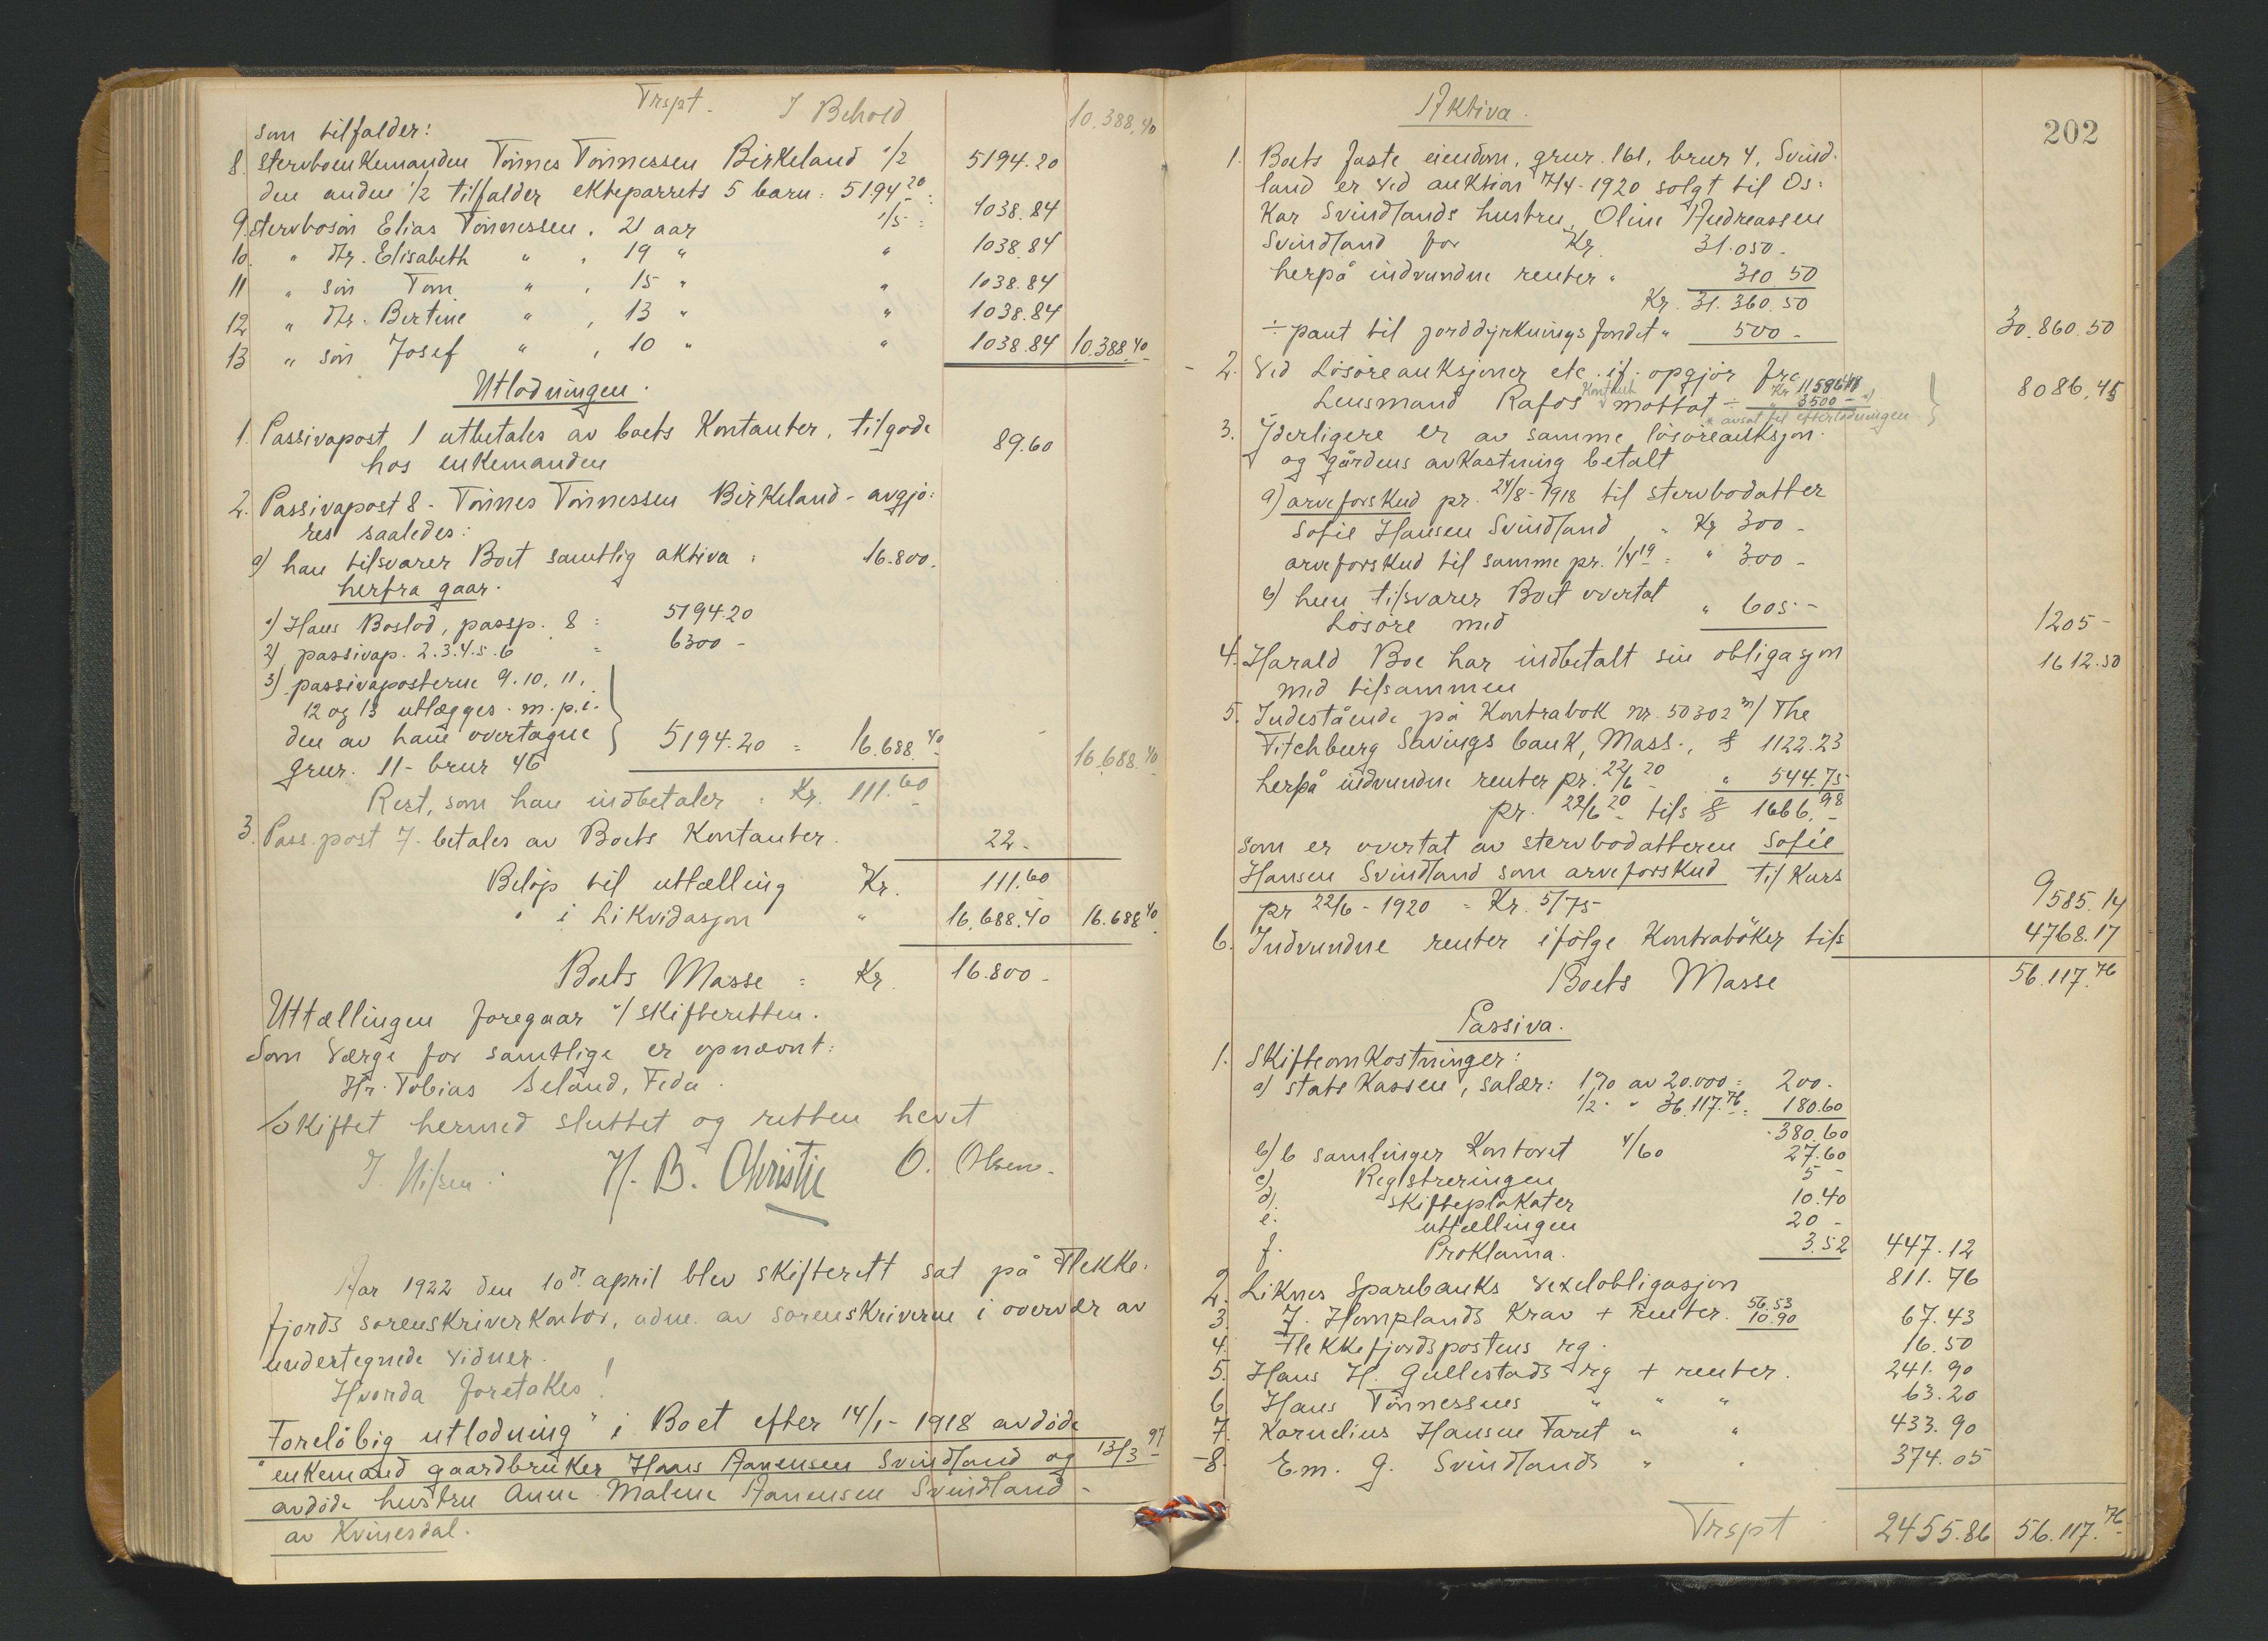 Trspt. I Behold 10.388,40
som tilfalder:
8. stervboenkemanden Tönnes Tönnessen Birkeland 1/2 5194.20
den anden 1/2 tilfalder ekteparrets 5 barn: 5194 20:
9. stervbosön Elias Tönnessen, 21 aar 1/5 = 1038.84
10. " dtr. Elisabeth " , 19 " " 1038.84
11 " sön Tom " , 15 " " 1038.84
12 " dtr. Bertine " , 13 " " 1038.84
13 " sön Josef " , 10 " " 1038.84 10.388.40
Utlodningen.
1. Passivapost 1 utbetales av boets Kontanter, tilgode 89.60
hos enkemanden
2. Passivapost 8 - Tönnes Tönnessen Birkeland - avgjö:
res saaledes:
a) han tilsvarer Boet samtlig aktiva: 16.800.
herfra gaar.
1) Hans Boslod, passp. 8 = 5194.20
2) passivap. 2.3.4.5.6 = 6300 -
3) passivaposterne 9.10.11.
12 og 13 utlægges m.p.i.
den av ham overtagne 5194.20 = 16.688.40
grnr. 11 - brnr 46 16.688.40
Rest, som han indbetaler: Kr. 111.60
3. Pass.post 7 - betales av Boets Kontanter. 22 -
Belöp til uttælling Kr. 111.60
" i Likvidasjon " 16.688.40 16.688 40
Boets Masse = Kr. 16.800 -
Uttællingen foregaar v/ skifteretten.
Som Værge for samtlige er opnævnt:
Hr. Tobias Seland, Feda.
Skiftet hermed sluttet og retten hevet
J. Nilsen. H. B. Christie O. Olsen.
Aar 1922 den 10de april blev skifterett sat på Flekke-
fjords sorenskriverkontor, adm. av sorenskriveren i overvær av
undertegnede vidner.
Hvorda foretakes!
Foreløbig utlodning" i Boet efter 14/1 - 1918 avdöde
"enkemand gaardbruker Hans Aanensen Svindland og 13/3 97
avdöde hustru Anne Malene Aanensen Svindland -
av Kvinesdal.
202
Aktiva.
1. Boets faste eiendom, grnr. 161, brnr 4, Svind-
land er ved auktion 7/4 - 1920 solgt til Os:
kar Svindlands hustru, Oline Andreassen
Svindland for Kr. 31.050 -
herpå indvundne renter " 310.50
Kr. 31.360.50
÷ pant til jorddyrkningsfondet " 500 - 30.860.50
2. Ved Lösöreauksjoner etc. if. opgjör fra Kr 11586.48
Lensmand Rafos Kontant mottat ÷ " 3500 - x) 8086,45
x avsat til efterlodningen
3. Yderligere er av samme lösöreauksjon
og gårdens avkastning betalt
a) arveforskud pr. 24/8 - 1918 til stervbodatter
Sofie Hansen Svindland - Kr 300 -
arveforskud til samme pr. 1/4 19 = " 300 -
b) hun tilsvarer Boet overtat
Lösöre med " 605 - 1205 -
4. Harald Boe har indbetalt sin obligasjon 1612.50
med tilsammen
5. Indestående på Kontrabok nr. 50302 m/ The
Fitchburg Savings bank, Mass., $ 1122.23
herpå indvundne renter pr. 22/6 20 " 544.75
pr. 22/6 20 tils $ 1666.98
som er overtat av stervbodatteren Sofie
Hansen Svindland som arveforskud til Kurs
pr 22/6 - 1920 = Kr. 5/75 9585.14
6. Indvundne renter ifölge Kontraböker tils 4768.17
Boets Masse 56.117.76
Passiva.
1. Skifteomkostninger:
a) statskassen, salær: 1% av 20.000 = 200.
1/2 " " 36.117.76 = 180.60
380.60
b) 6 samlinger Kontoret 4/60 27.60
c) Registreringen 5 -
d) skifteplakater 10.40
e. uttællingen 20 -
f. Proklama. 3.52 447.12
2. Liknes Sparebanks vexelobligasjon 811.76
3. J. Homplands Krav + renter. 56.53 10.90 67.43
4. Flekkefjordspostens rg. 16.50
5. Hans H. Gullestads rg + renter. 241.90
6. Hans Tönnessens " " " 63.20
7. Kornelius Hansen Faret " " 433.90
8. Em. G. Svindlands " " 374.05
Trspt 2455.86 56.117.76